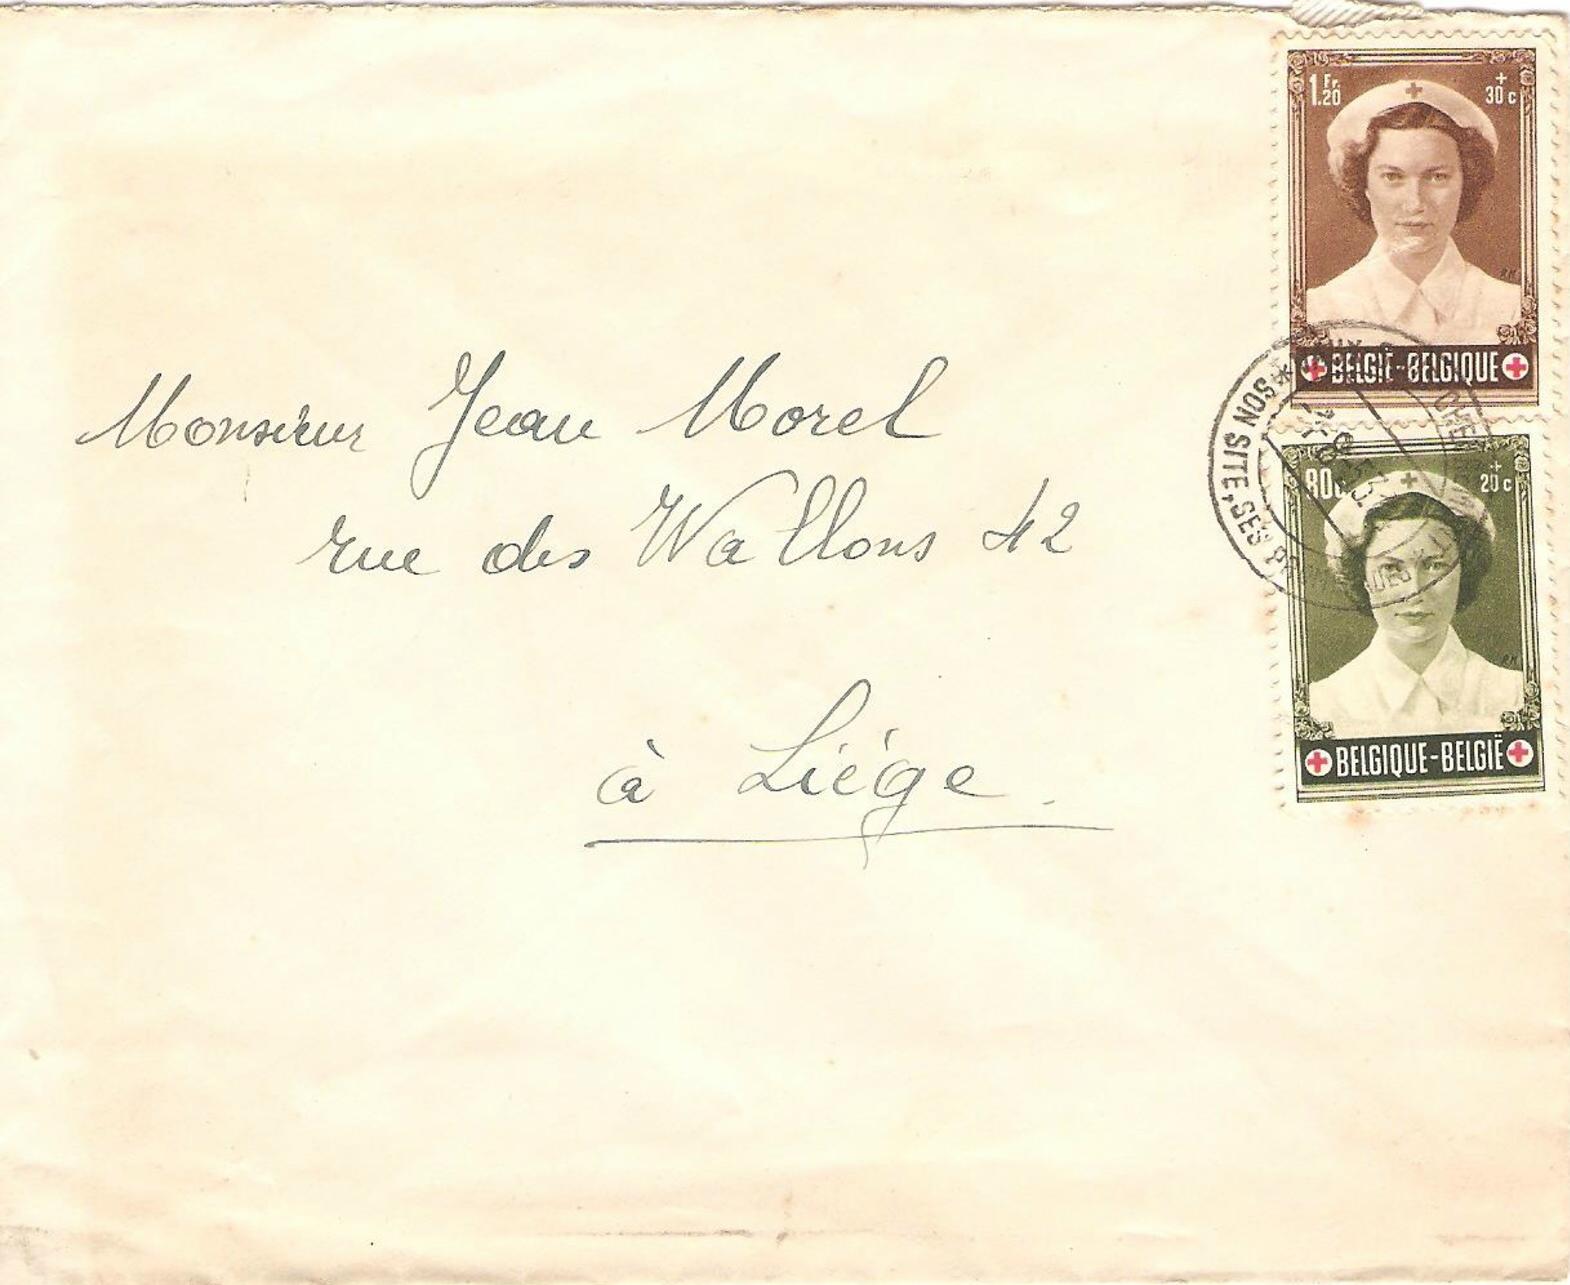 1 Fr. 20 + 30 c
R.M.
BELGIË-BELGIQUE
80c + 20 c
R.M.
BELGIQUE-BELGIË
SON SITE, SES
Monsieur Jean Morel
rue des Wallons 42
à Liége.